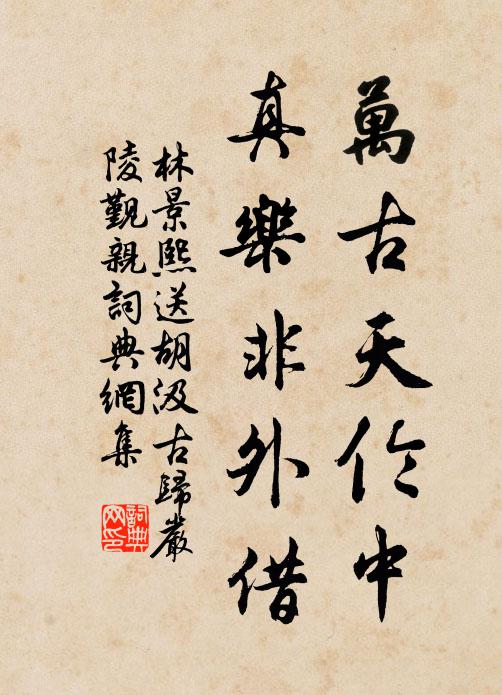 萬古天倫中
真樂非外借
林景熙送胡汲古歸嚴
陵覲親詞典網集
詞典
网印